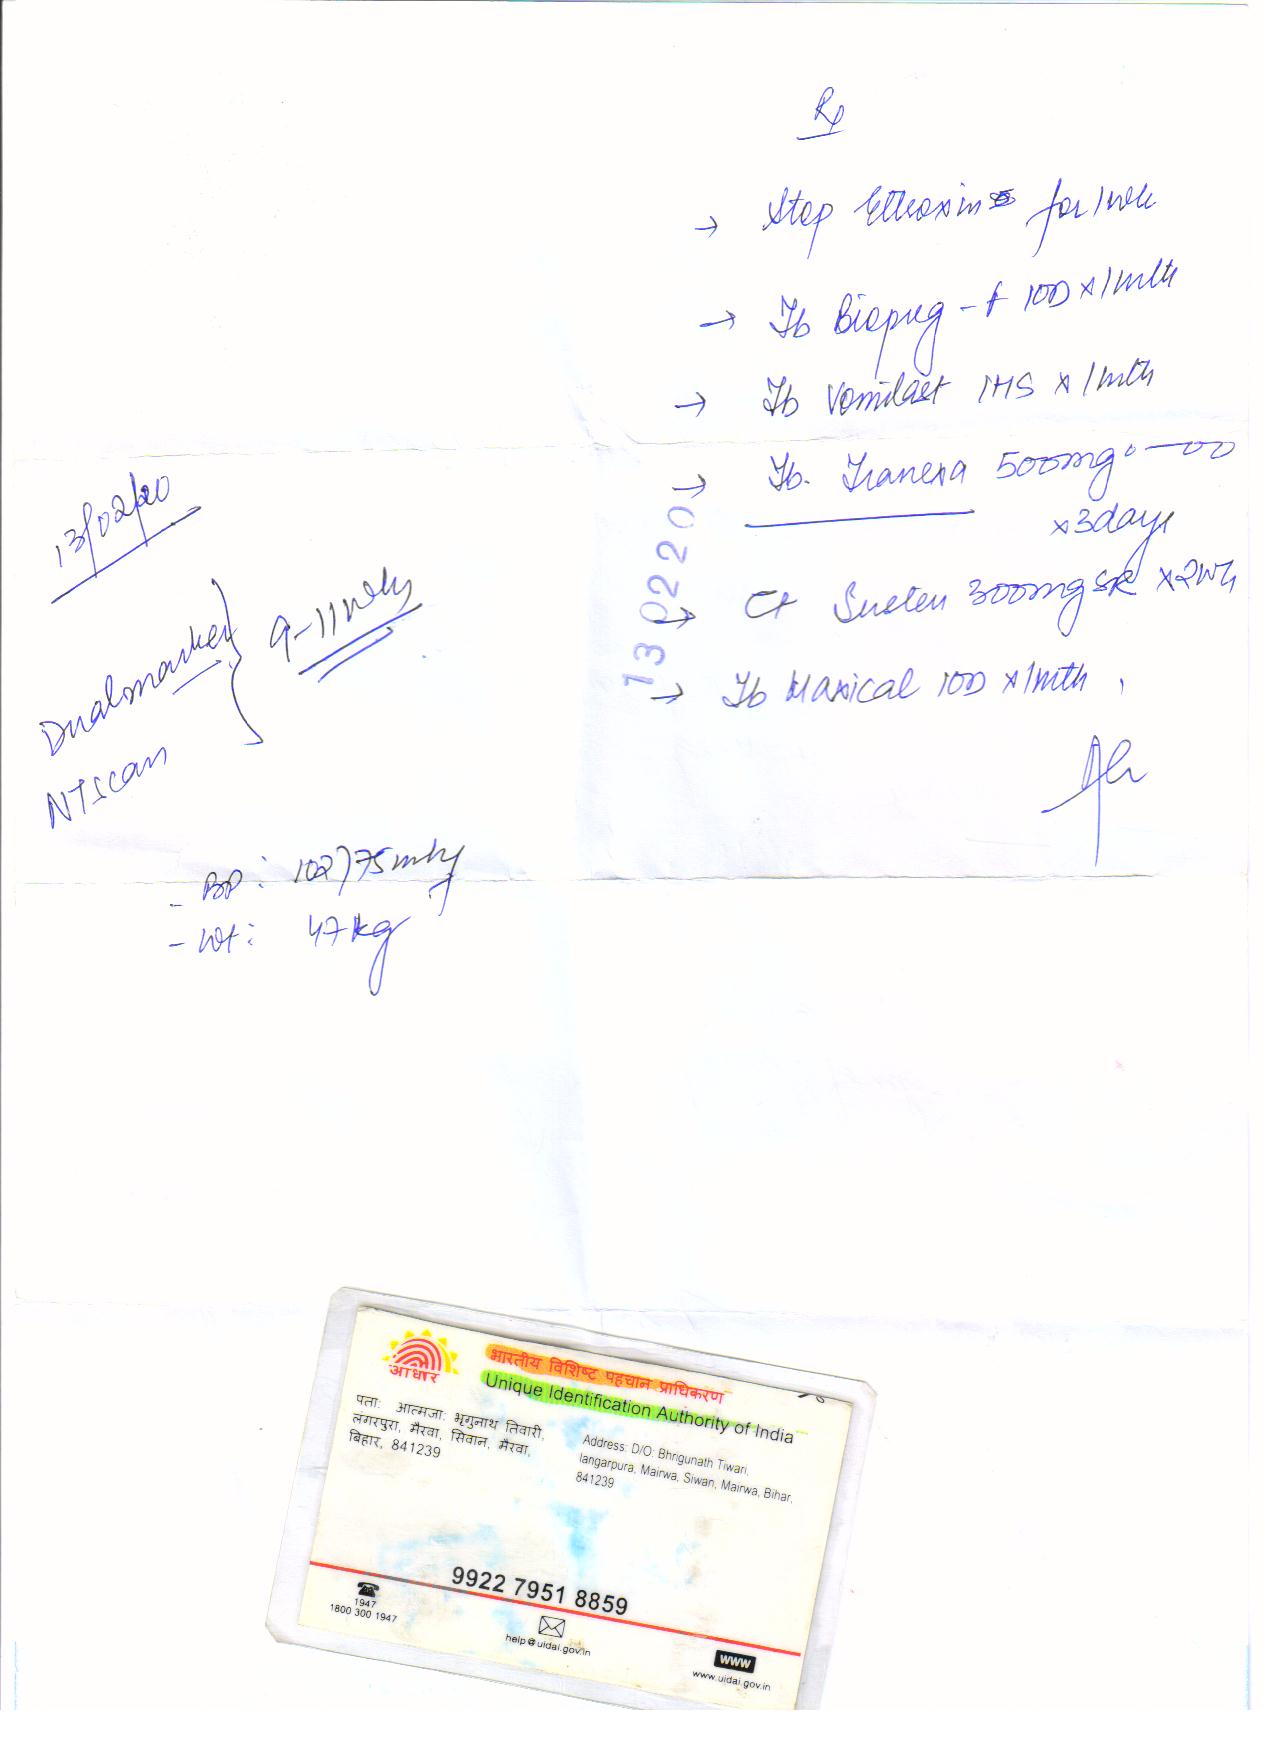 Rx
→ Stop Eltroxin for 1 wk
→ Tb Biopreg-f 1OD x 1mth
→ Tb Vomilast 1HS x 1mth
→ Tb. Tranexa 500mg
x 3days
→ Ct Susten 300mg SR x 2wk
→ Tb Maxical 1OD x 1mth
130220
13/02/20
Dualmarker } 9-11wks
NT Scan
- BP: 102/75mhg
- Wt: 47kg
आधार
भारतीय विशिष्ट पहचान प्राधिकरण
Unique Identification Authority of India
पता: आत्मजा: भृगुनाथ तिवारी,
लंगरपुरा, मैरवा, सिवान, मैरवा,
बिहार, 841239
Address: D/O: Bhrigunath Tiwari,
langarpura, Mairwa, Siwan, Mairwa, Bihar,
841239
9922 7951 8859
1947
1800 300 1947
help@uidai.gov.in
WWW
www.uidai.gov.in